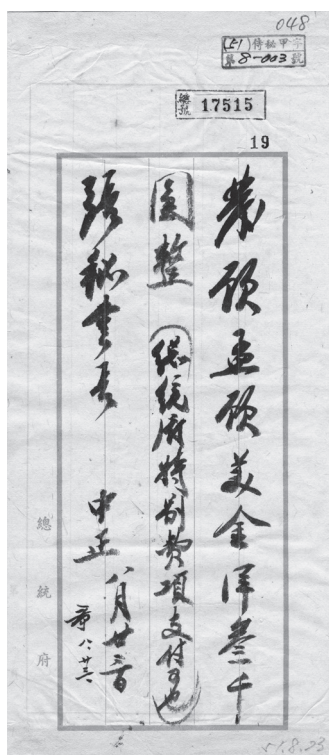 048
(51)侍秘甲字
第8-003號
總統 17515
19
發顧孟餘美金洋叁千
圓整 (總統府特別費項支付可也)
張秘書長
中正 八月廿三日
章八、廿六
總統府
51.8.23